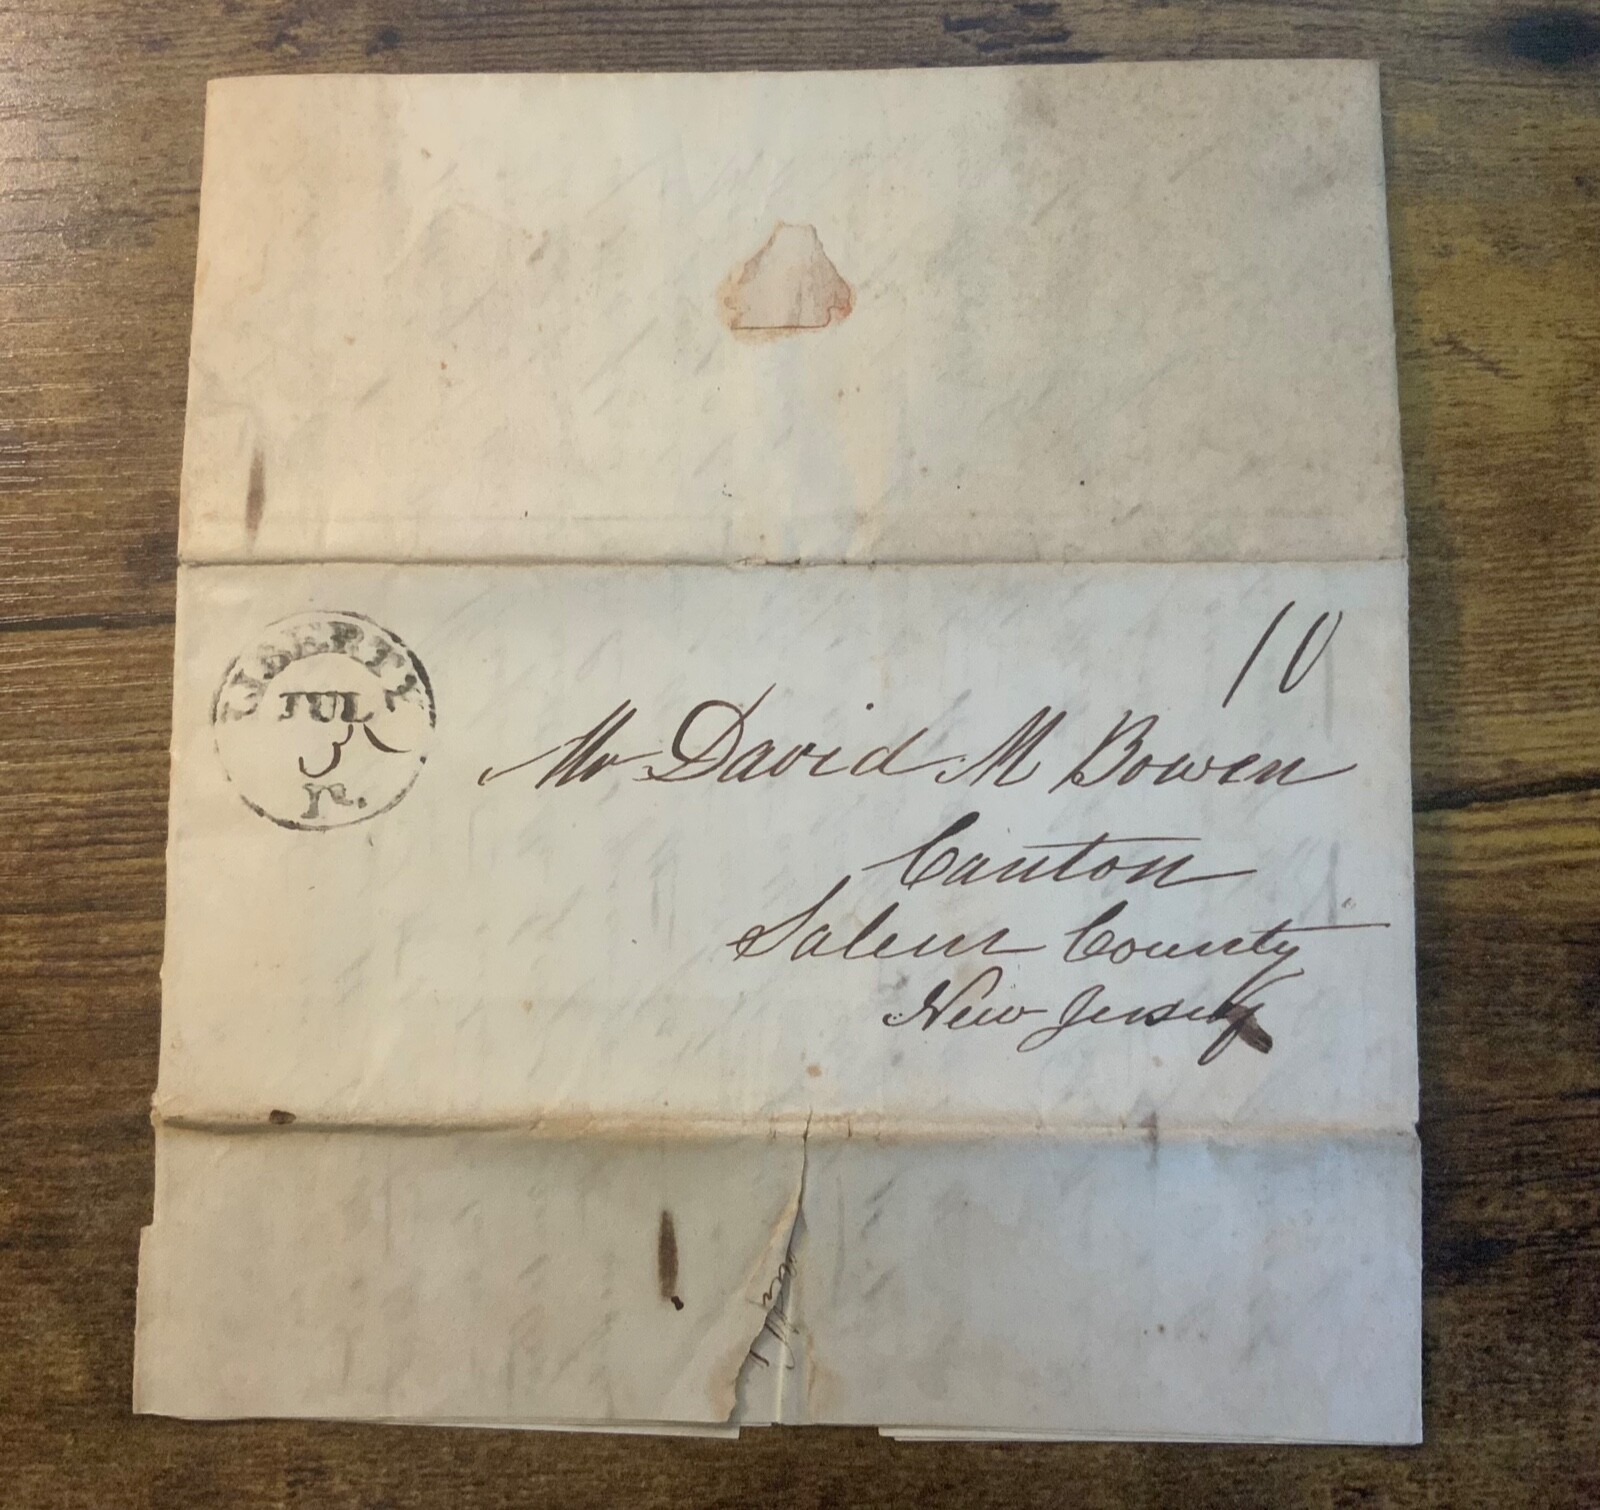 LIBERTY
JUL
3
Ia.
10
Mr David M Bowen
Canton
Salem County
New Jersey